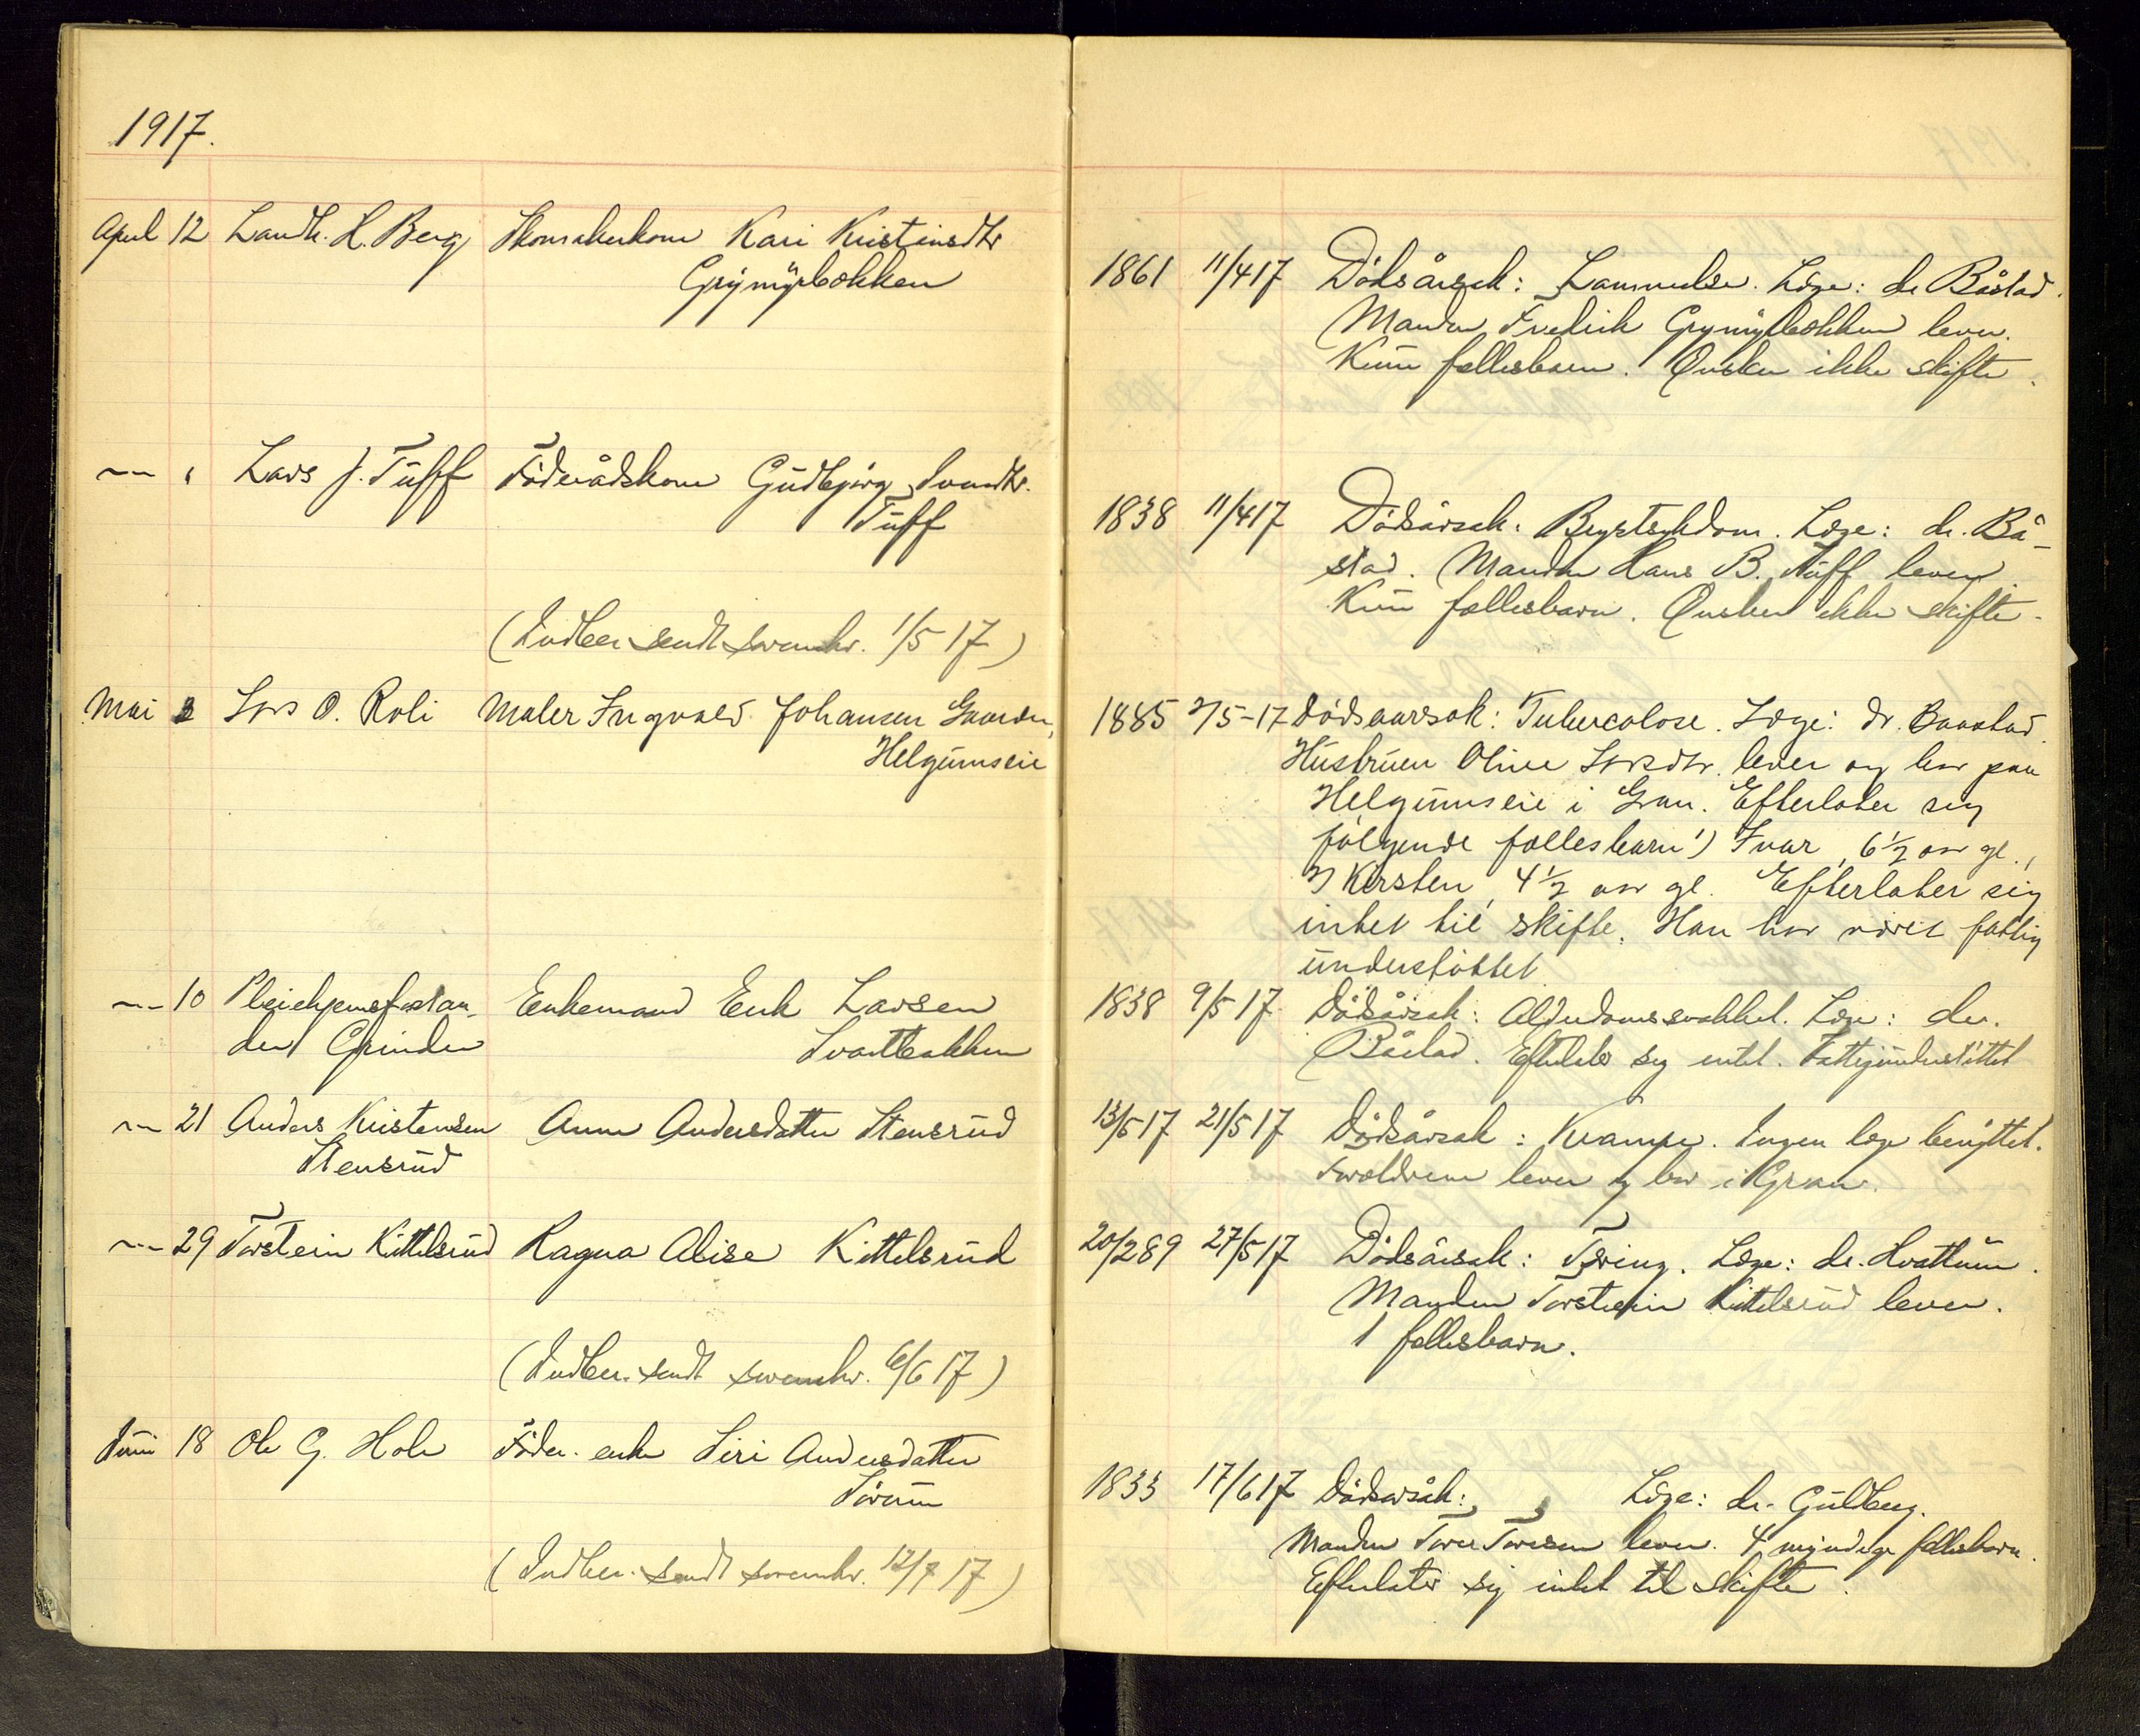 1917.
April 12 Landh. L. Berg Skomakerkone Kari Kristinsdtr
Grymyrbækken
— " Lars J. Tuff Föderådskone Gudbjörg Svendtr.
Tuff
(Indber. sendt sorenskr. 1/5 17)
Mai 2 Lars O. Roli Maler Ingvald Johansen Gaarder,
Helgumseie
— 10 Pleiehjemsforstan-
der Grinder
Enkemand Erik Larsen
Svartbakken
— 21 Anders Kristensen Anne Andersdatter Stensrud
Stensrud
— 29 Torstein Kittelsrud Ragna Alise Kittelsrud
(Indber. sendt sorenskr. 6/6 17)
Juni 18 Ole G. Hole Föder. enke Siri Andersdatter
Sörum
(Indber. sendt sorenskr. 12/7 17)
1861 11/4 17 Dödsårsak: Lammelse. Læge: dr Båstad.
Manden Fredrik Grymyrbækken lever.
Kun fællesbarn. Ønsker ikke skifte.
1838 11/4 17 Dödsårsak: Brystsykdom. Læge: dr. Bå-
stad. Manden Hans B. Tuff lever.
Kun fællesbarn. Ønsker ikke skifte.
1885 2/5-17 Dödsaarsak: Tuberculose. Læge: dr. Baastad.
Hustruen Oline Larsdtr. lever og bor paa
Helgumseie i Gran. Efterlater sig
følgende fællesbarn 1) Ivar, 6 1/2 aar gl.,
2) Kirsten, 4 1/2 aar gl. Efterlater sig
intet til skifte. Han har været fattig
understöttet.
1838 9/5 17. Dödsårsak: Alderdomssvakhet. Læge: dr.
Båstad. Efterlater sig intet. Fattigunderstöttet
13/5 17 21/5 17 Dödsårsak: Krampe. Ingen læge benyttet.
Forældrene lever og bor i Gran.
20/2 89 27/5 17 Dödsårsak: Tæring. Læge: dr. Hvattum.
Manden Torstein Kittelsrud lever.
1 fællesbarn.
1833 17/6 17 Dödsårsak: Læge: dr. Guldberg.
Manden Tore Toresen lever. 4 myndige fællesbarn.
Efterlater sig intet til skifte.